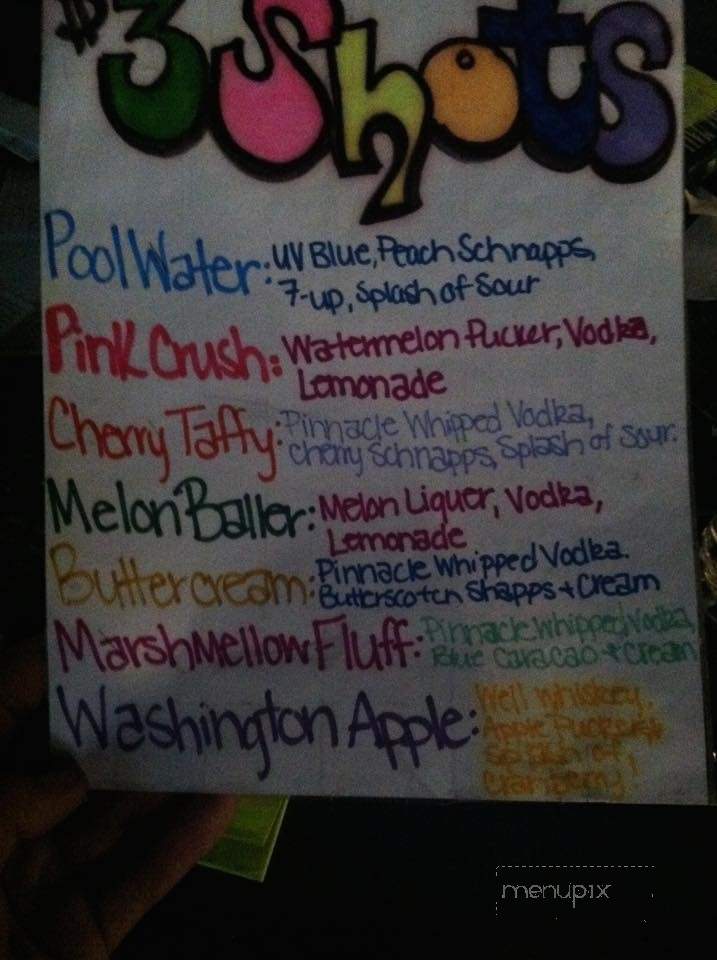 $3 Shots
Pool Water: UV Blue, Peach Schnapps,
7-up, Splash of Sour
Pink Crush: Watermelon Pucker, Vodka,
Lemonade
Cherry Taffy: Pinnacle Whipped Vodka,
Cherry Schnapps, Splash of Sour.
Melon Baller: Melon Liquer, Vodka,
Lemonade
Buttercream: Pinnacle Whipped Vodka.
Butterscotch Shapps + Cream
Marshmellow Fluff: Pinnacle Whipped Vodka,
Blue Caracao + Cream
Washington Apple: Well Whiskey,
Apple Pucker &
Splash of
Cranberry!
menupix